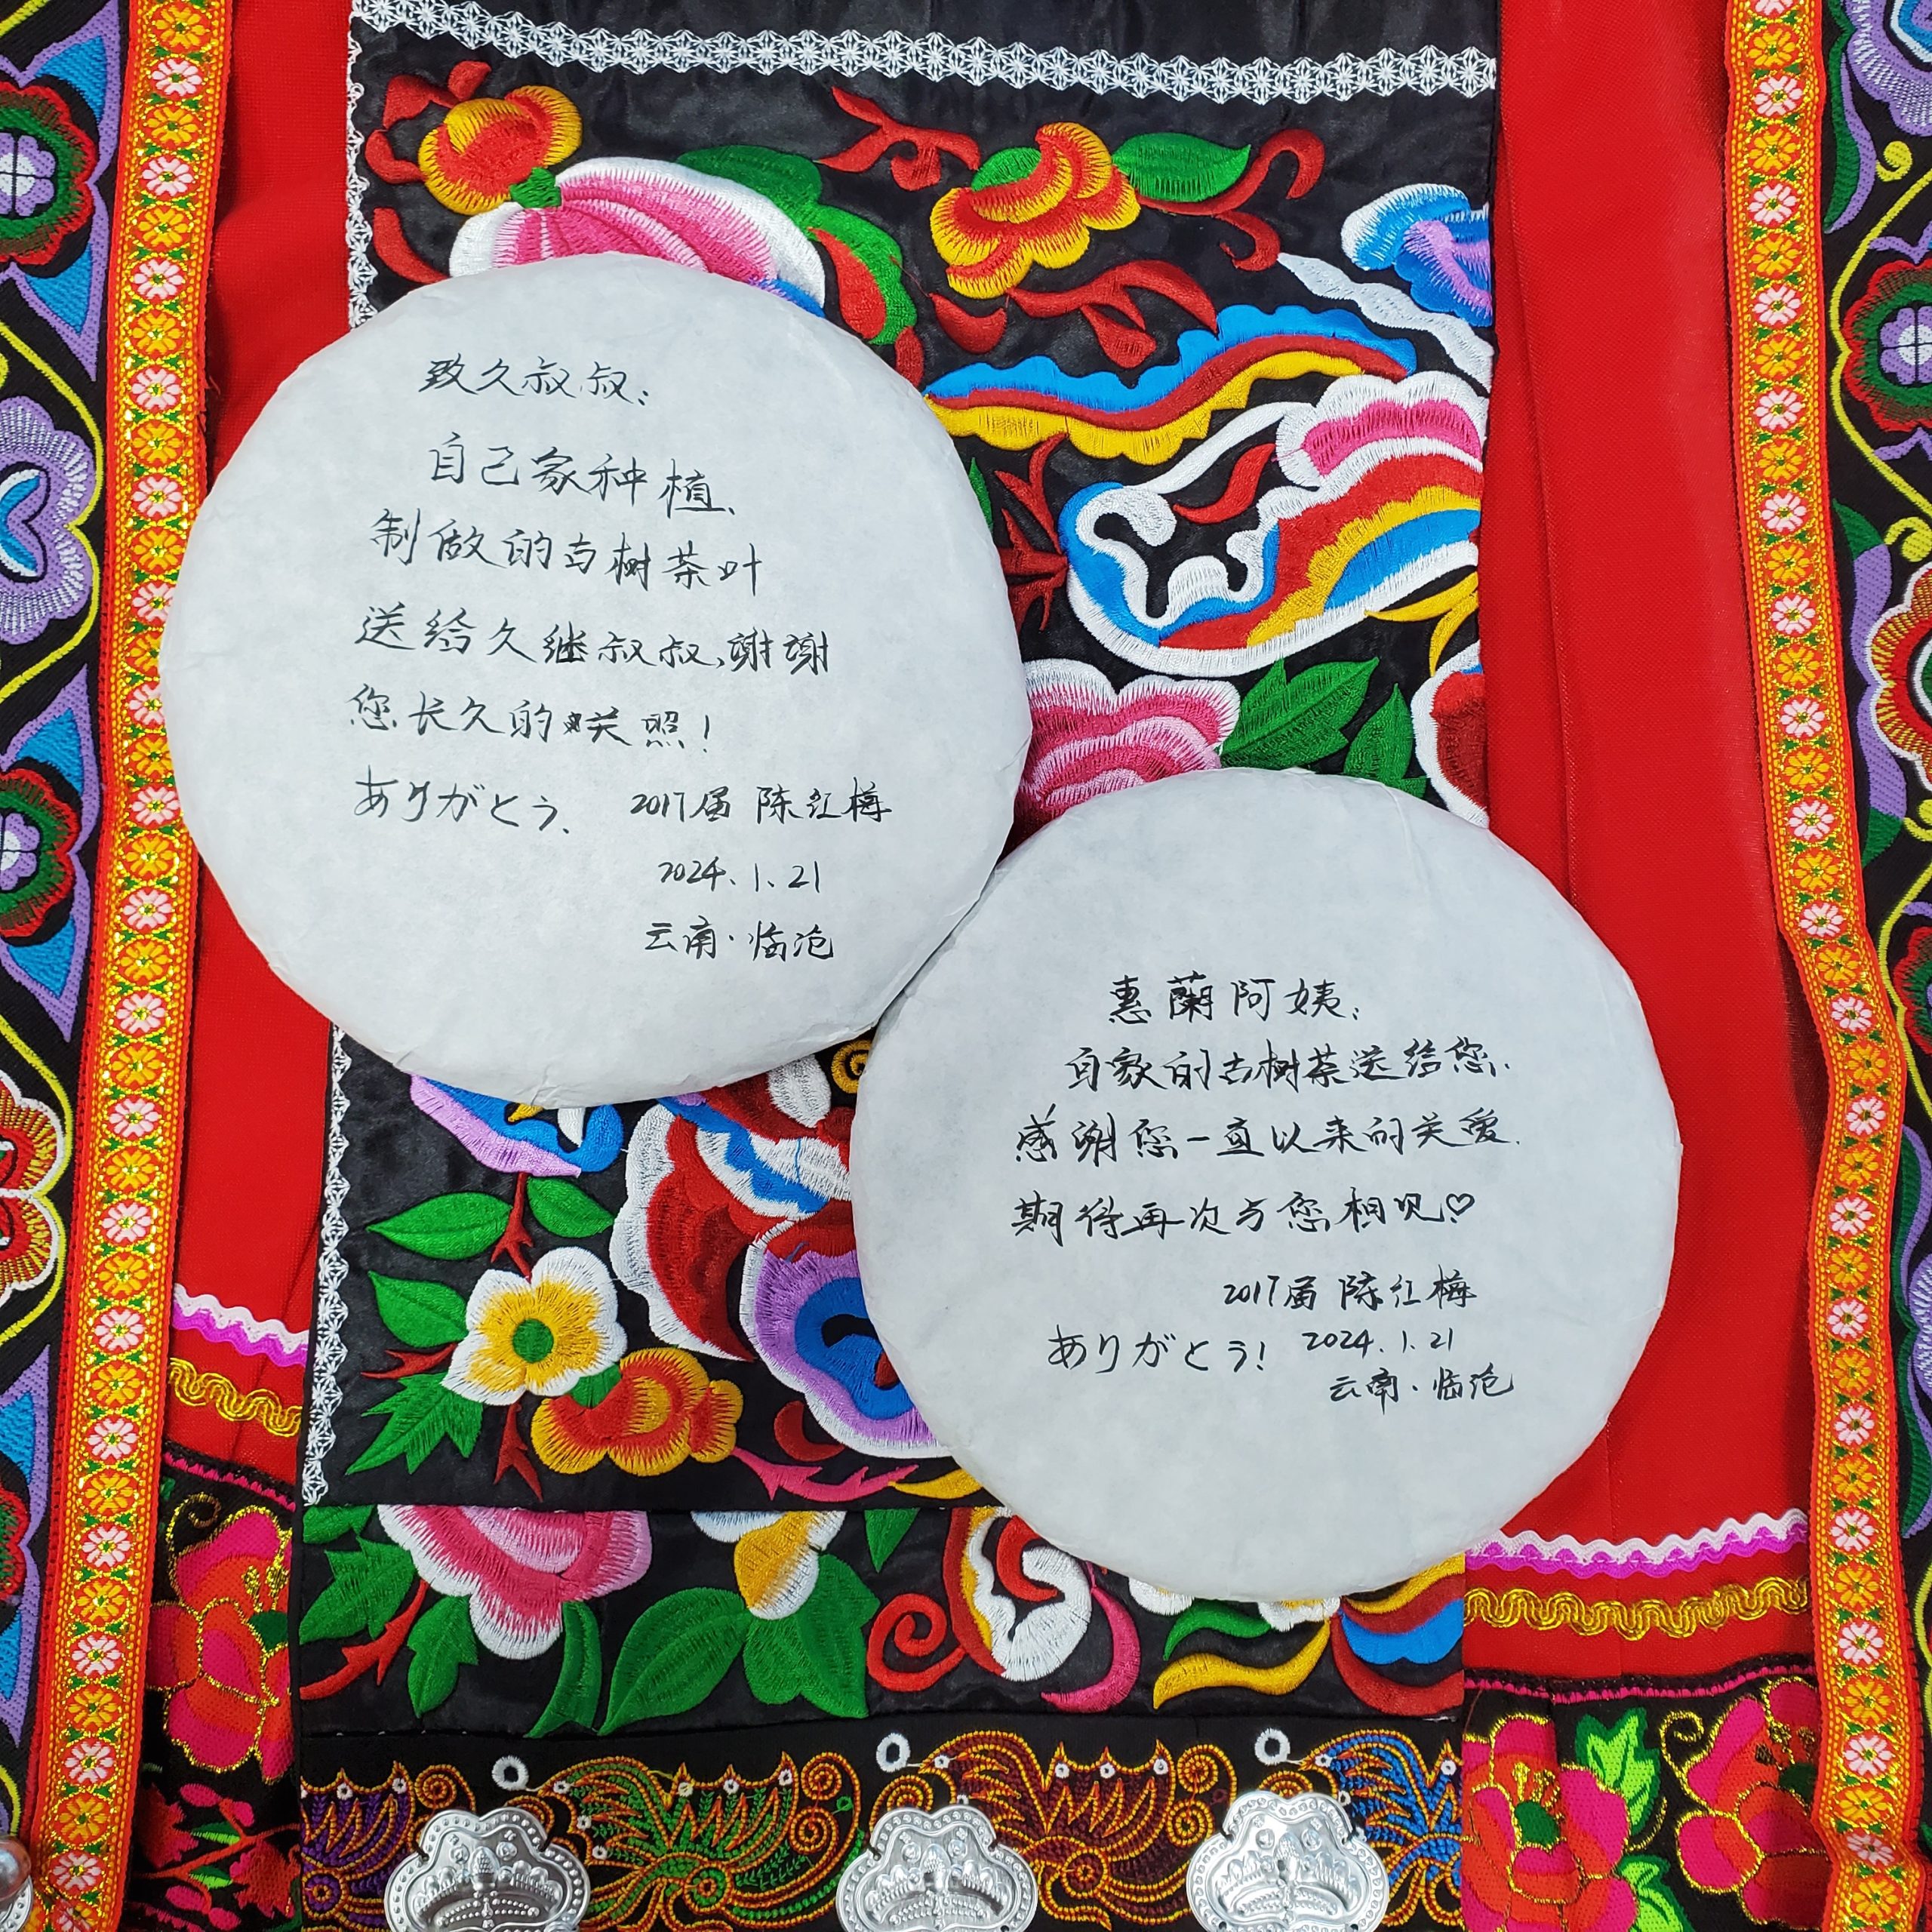 致久叔叔：
自己家种植、
制做的古树茶叶
送给久继叔叔，谢谢
您长久的关照！
ありがとう、 2017届 陈红梅
2024.1.21
云南·临沧
惠蘭阿姨：
自家的古树茶送给您.
感谢您一直以来的关爱.
期待再次与您相见♡
2017届 陈红梅
ありがとう! 2024.1.21
云南·临沧